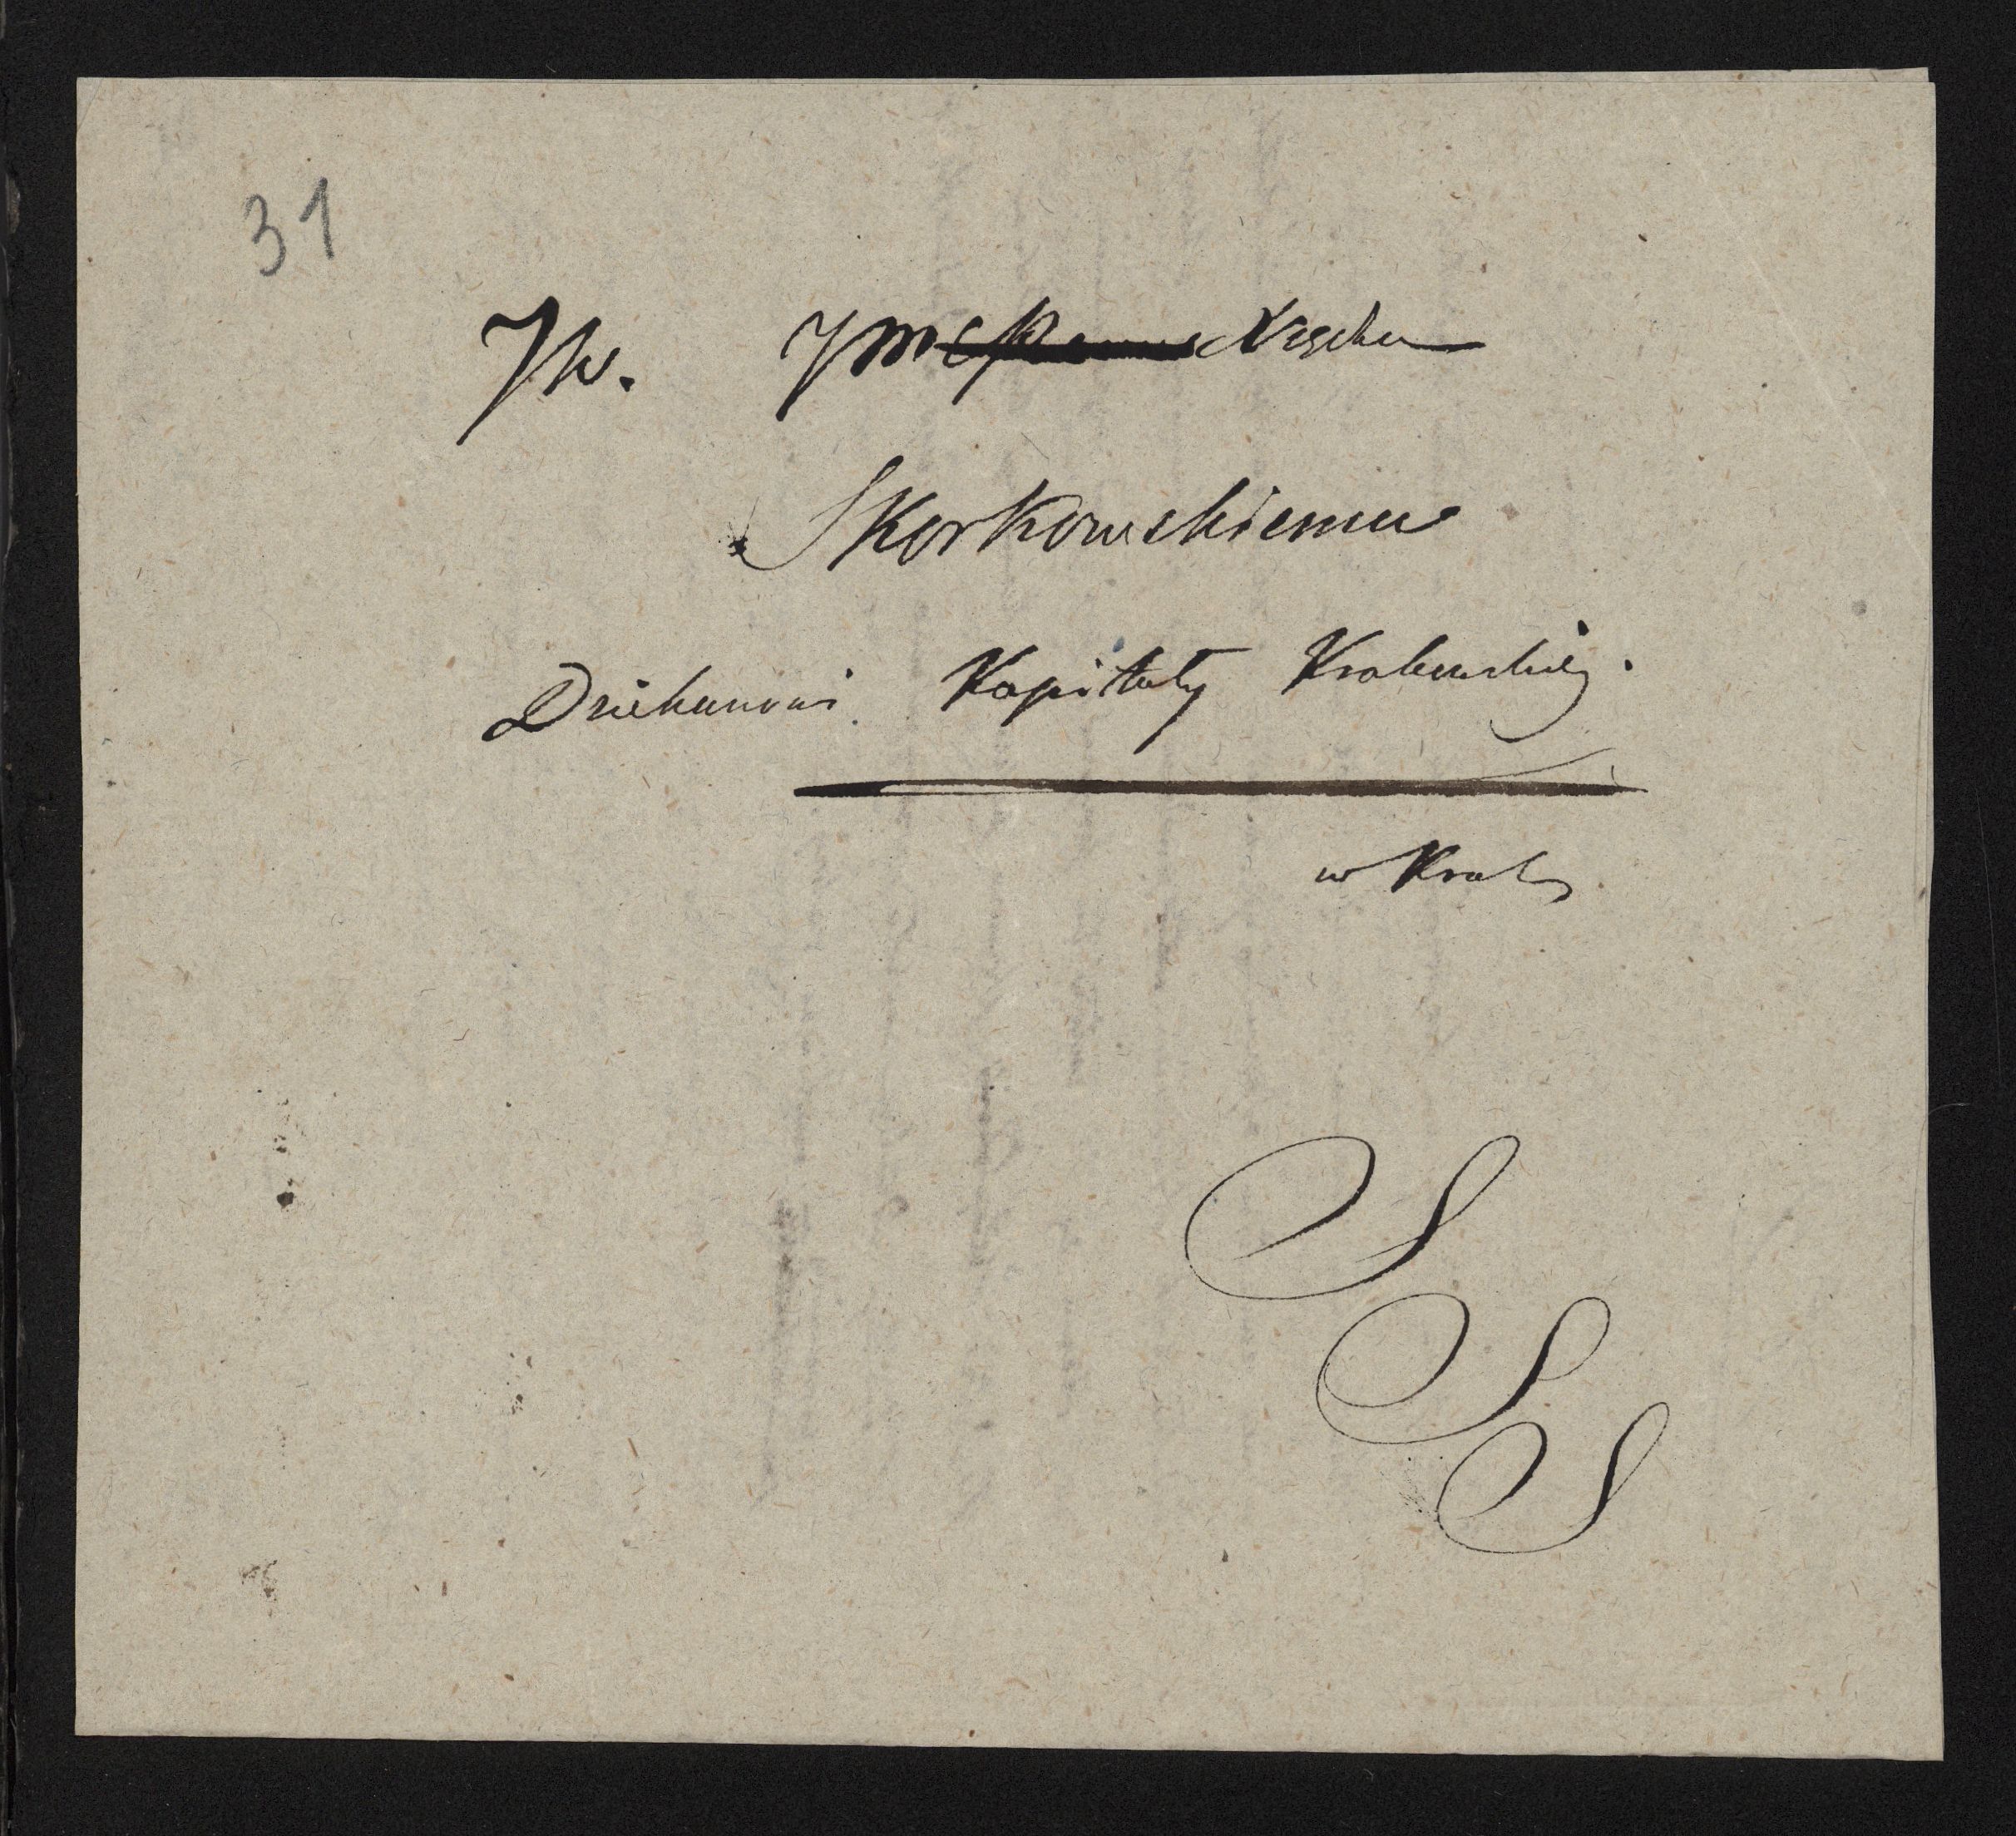 31
JW. JM Xiędzu
Skorkowskiemu
Dziekanowi Kapituły Krakowskiej.
w Krak
S
S
S